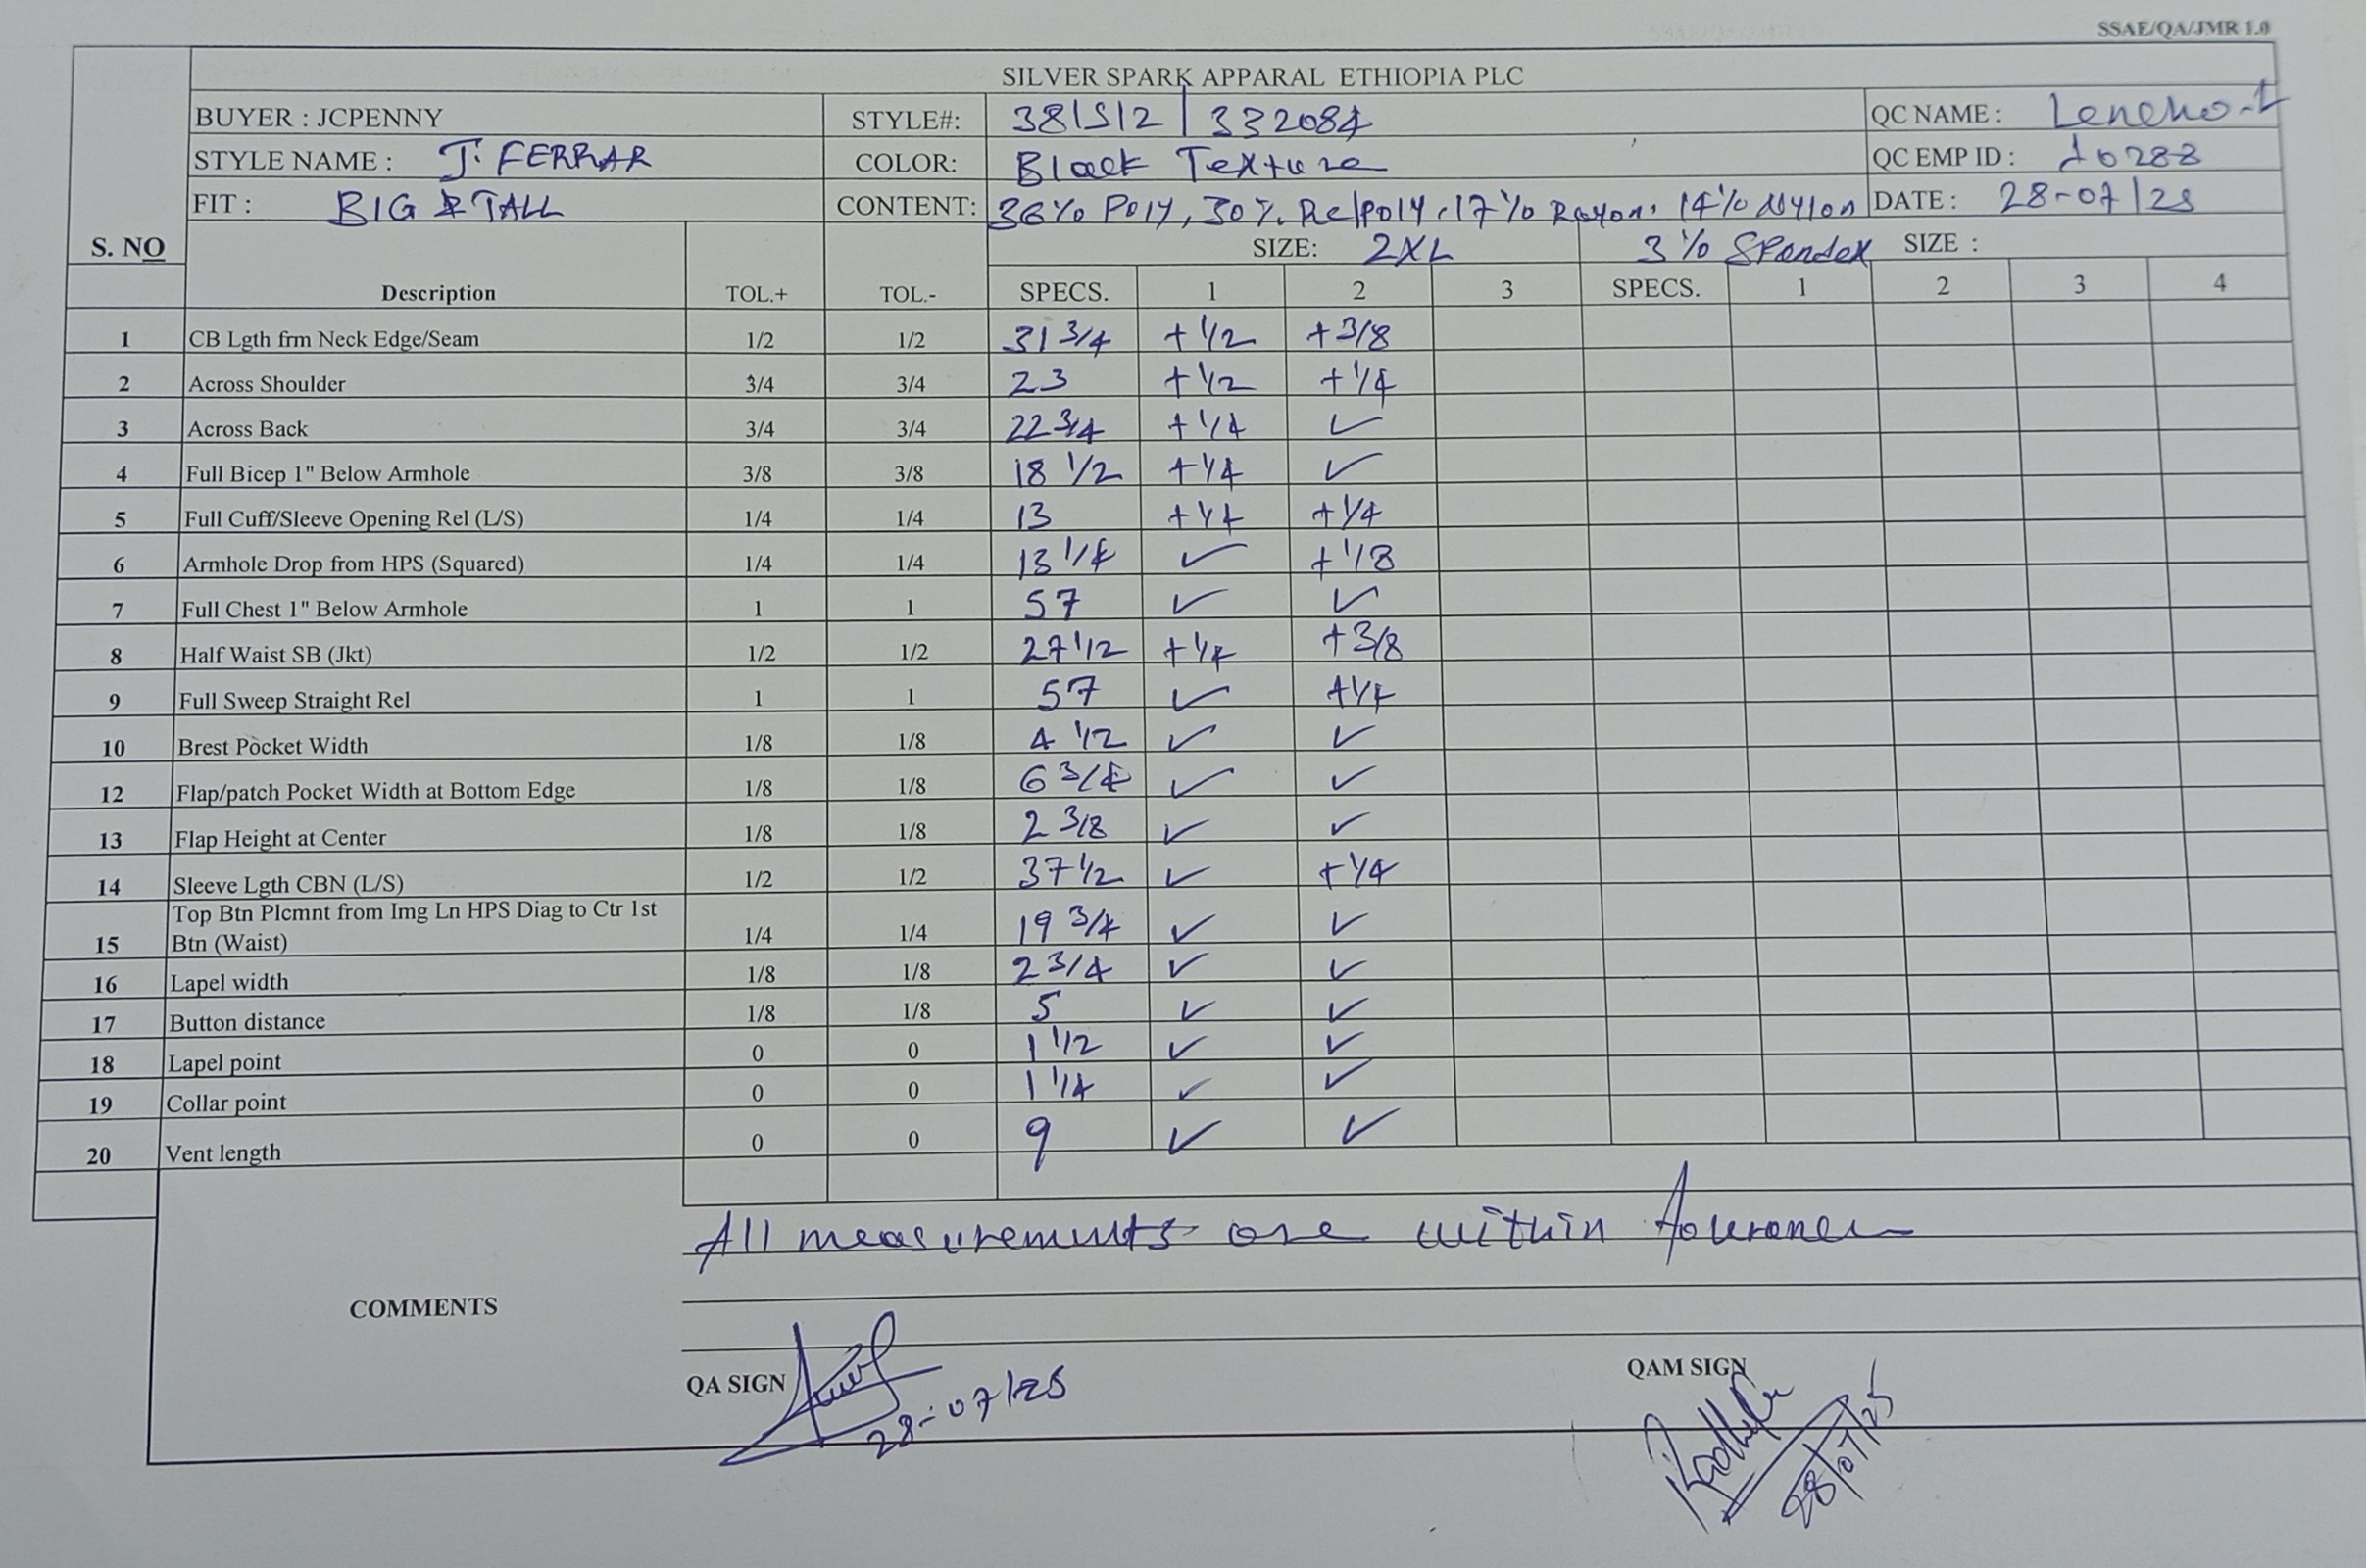 SSAE/QA/JMR 1.0
SILVER SPARK APPARAL ETHIOPIA PLC
BUYER : JCPENNY STYLE#: 381S12 | 332084 QC NAME : Lencho-t
STYLE NAME : J. FERRAR COLOR: Black Texture QC EMP ID : 10288
FIT : BIG & TALL CONTENT: 36% Poly, 30% Re/Poly, 17% Rayon, 14% Nylon DATE : 28-07/25
S. NO SIZE: 2XL 3% Spandex SIZE :
Description TOL.+ TOL.- SPECS. 1 2 3 SPECS. 1 2 3 4
1 CB Lgth frm Neck Edge/Seam 1/2 1/2 31 3/4 + 1/2 + 3/8
2 Across Shoulder 3/4 3/4 23 + 1/2 + 1/4
3 Across Back 3/4 3/4 22 3/4 + 1/4 ✓
4 Full Bicep 1" Below Armhole 3/8 3/8 18 1/2 + 1/4 ✓
5 Full Cuff/Sleeve Opening Rel (L/S) 1/4 1/4 13 + 1/4 + 1/4
6 Armhole Drop from HPS (Squared) 1/4 1/4 13 1/4 ✓ + 1/8
7 Full Chest 1" Below Armhole 1 1 57 ✓ ✓
8 Half Waist SB (Jkt) 1/2 1/2 27 1/2 + 1/4 + 3/8
9 Full Sweep Straight Rel 1 1 57 ✓ + 1/4
10 Brest Pocket Width 1/8 1/8 4 1/2 ✓ ✓
12 Flap/patch Pocket Width at Bottom Edge 1/8 1/8 6 3/4 ✓ ✓
13 Flap Height at Center 1/8 1/8 2 3/8 ✓ ✓
14 Sleeve Lgth CBN (L/S) 1/2 1/2 37 1/2 ✓ + 1/4
Top Btn Plcmnt from Img Ln HPS Diag to Ctr 1st
15 Btn (Waist) 1/4 1/4 19 3/4 ✓ ✓
16 Lapel width 1/8 1/8 2 3/4 ✓ ✓
17 Button distance 1/8 1/8 5 ✓ ✓
18 Lapel point 0 0 1 1/2 ✓ ✓
19 Collar point 0 0 1 1/4 ✓ ✓
20 Vent length 0 0 9 ✓ ✓
All measurements are within tolerance
COMMENTS
QA SIGN 28-07/25 QAM SIGN 28/07/25